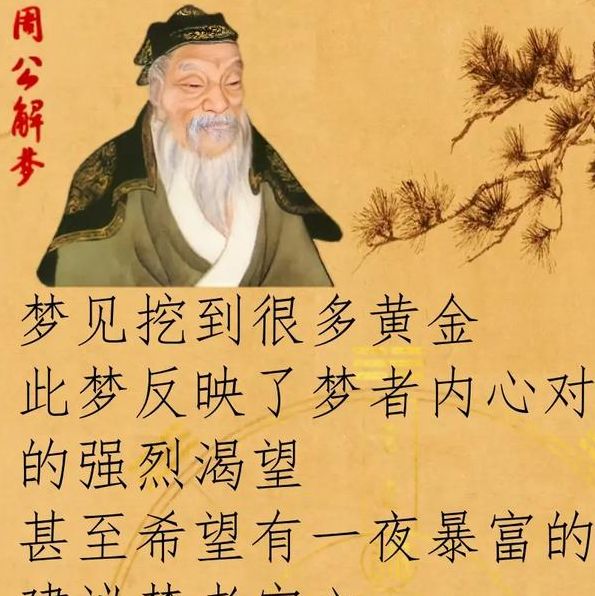 周公解梦
梦见挖到很多黄金
此梦反映了梦者内心对
的强烈渴望
甚至希望有一夜暴富的